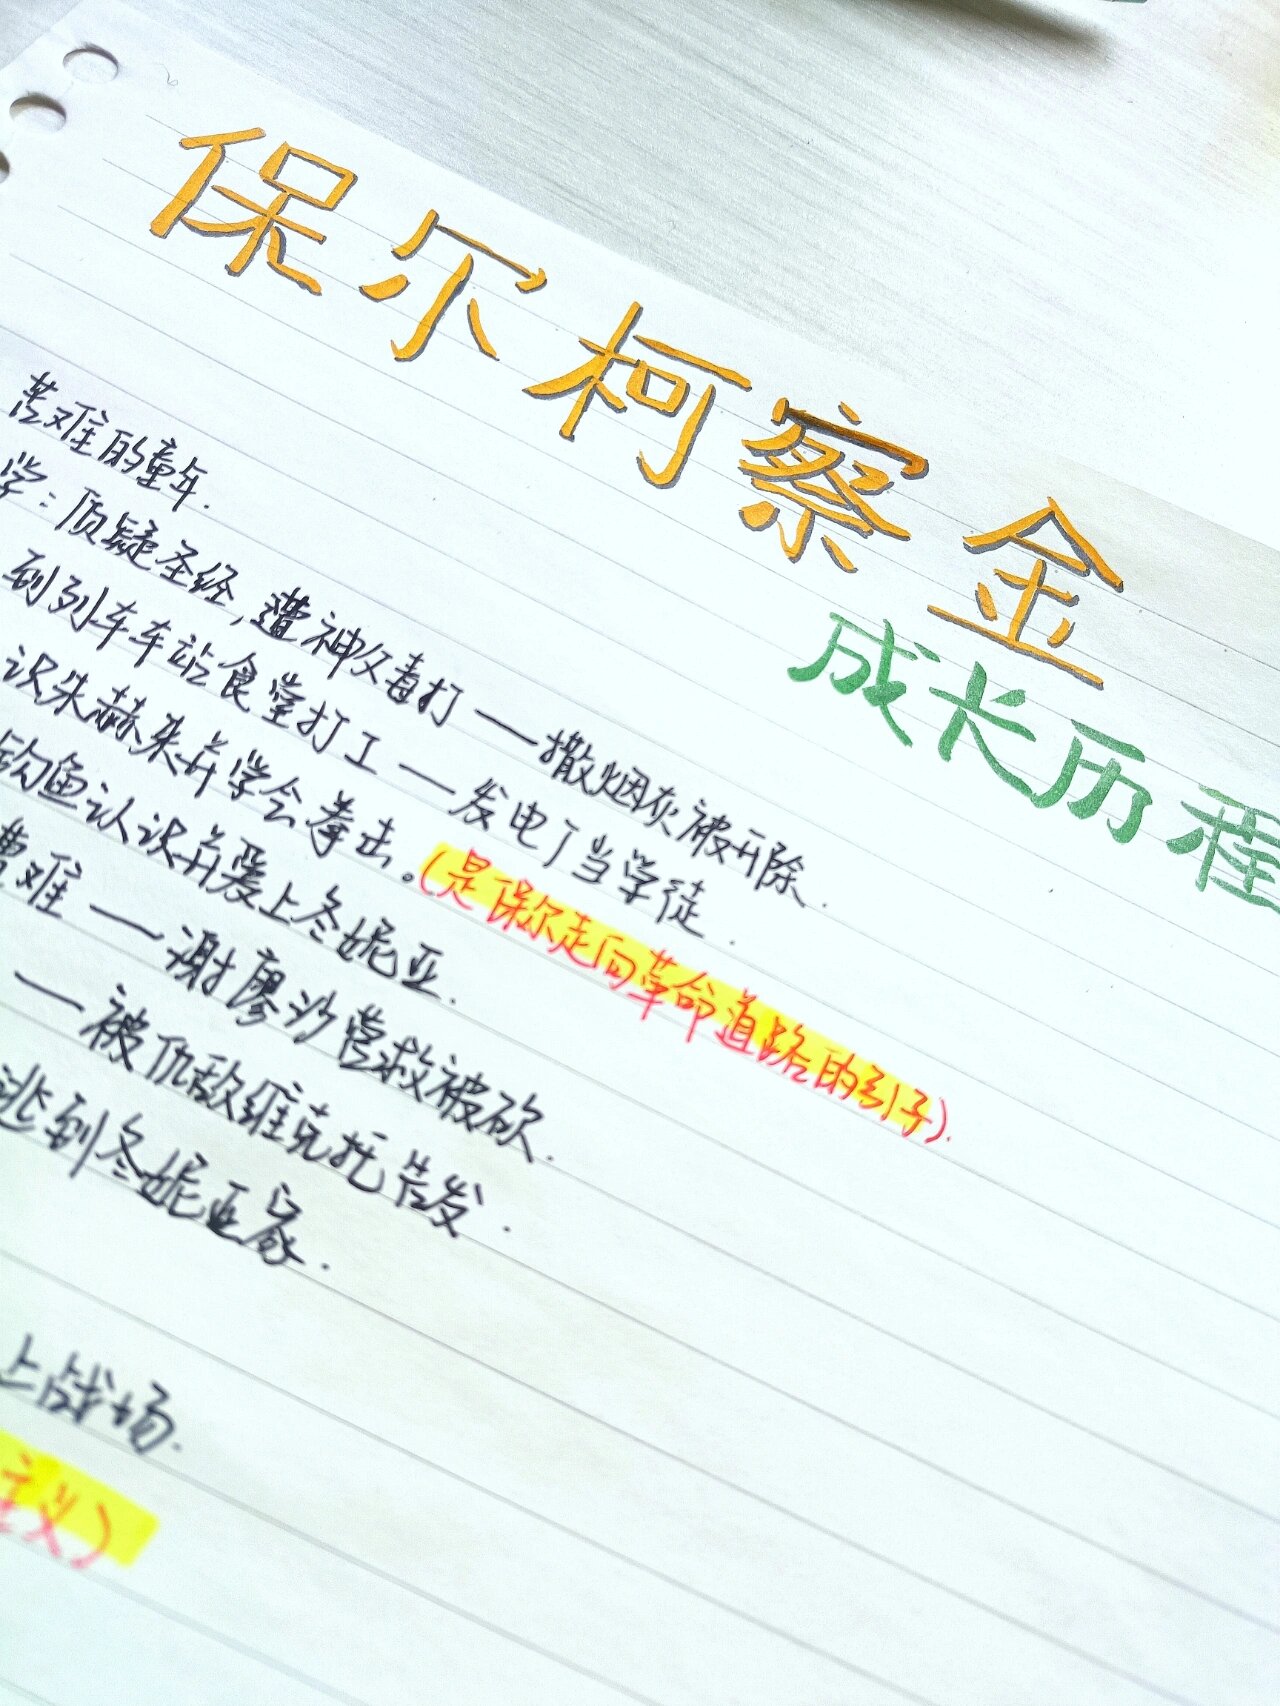 保尔柯察金
成长历程
苦难的童年.
学：质疑圣经,遭神父毒打 — 撒烟灰被开除.
到列车车站食堂打工 — 发电厂当学徒.
识朱赫来并学会拳击。(是保尔走向革命道路的引子).
钓鱼认识并爱上冬妮亚.
难 — 谢廖沙营救被砍.
— 被仇敌维克托告发.
逃到冬妮亚家.
上战场.
主义)